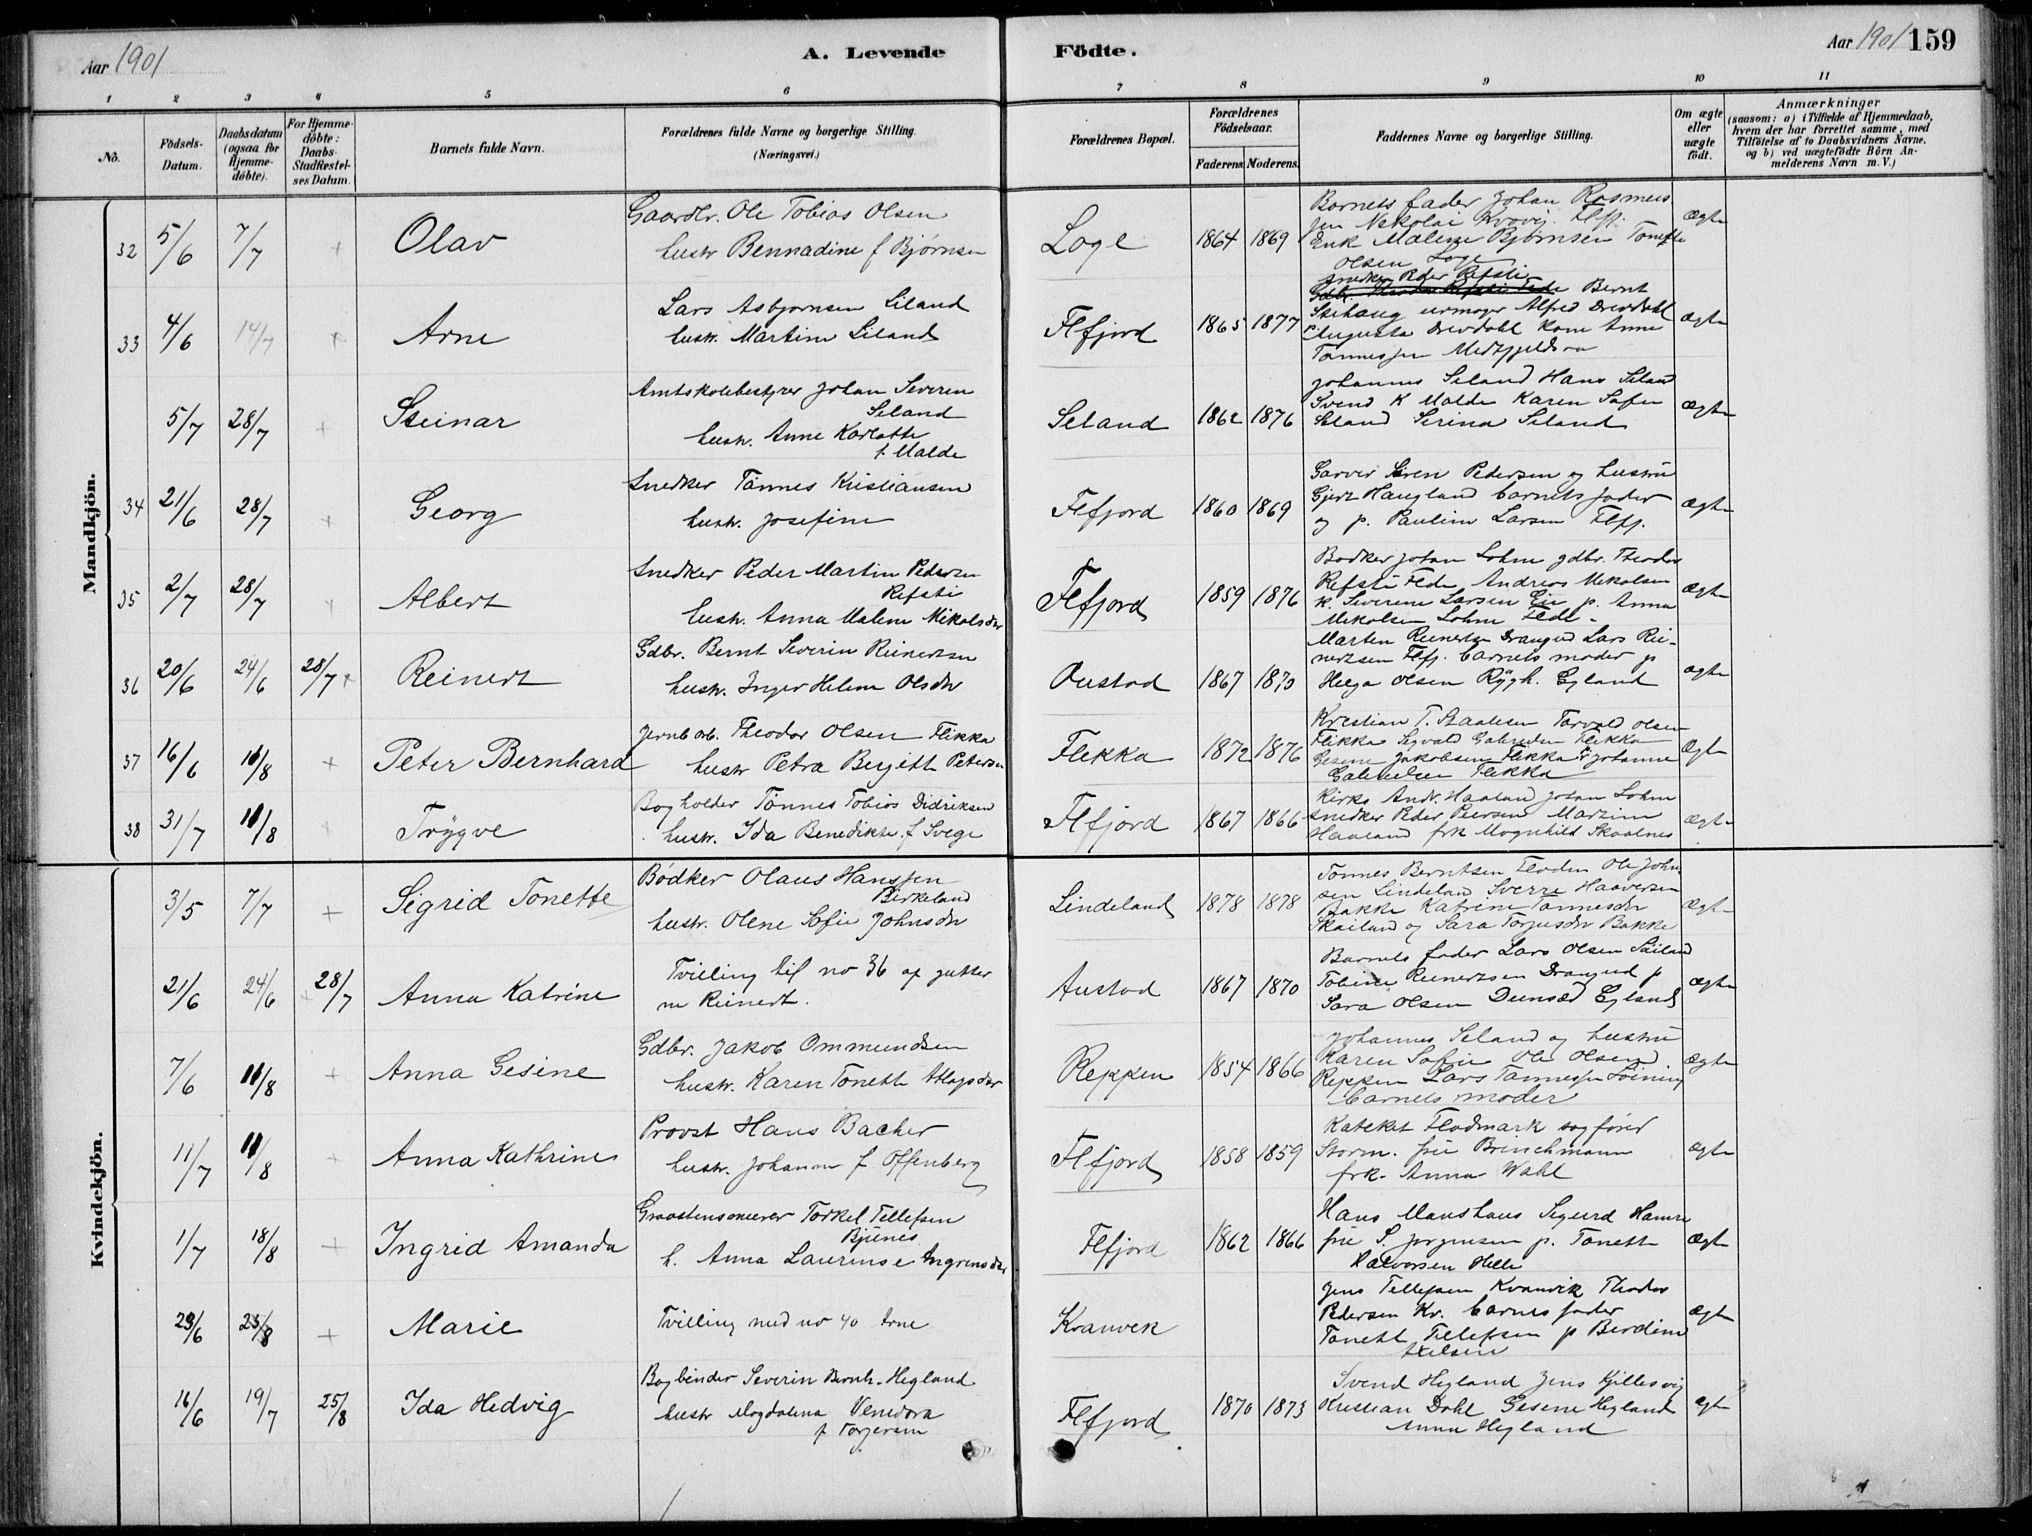 Aar 1901
A. Levende Födte.
Aar 1901 159
1 2 3 4 5 6 7 8 9 10 11
No.
Födsels-Datum.
Daabsdatum (ogsaa for Hjemme-döbte).
For Hjemme-döbte: Daabs-Stadfæstel-ses Datum.
Barnets fulde Navn.
Forældrenes fulde Navne og borgerlige Stilling. (Næringsvei.)
Forældrenes Bopæl.
Forældrenes Födselsaar.
Faderens. Moderens.
Faddernes Navne og borgerlige Stilling.
Om ægte eller uægte födt.
Anmærkninger
(saasom: a) i Tilfælde af Hjemmedaab,
hvem der har forrettet samme, med
Tilföielse af to Daabsvidners Navne,
og b) ved uægtefödte Börn An-
melderens Navn m. V.)
Mandkjön.
32 5/6 7/7 + Olav
Gaardbr. Ole Tobias Olsen
hustr Bennadine f Bjørnsen
Loge 1864 1869
Barnets fader Johan Rasmus
Enk Malene Bjørnsen Tonette
Olsen Loge
Ægte
33 4/6 14/7 + Arne
Lars Asbjornsen Liland
hustr. Martine Liland
Flfjord 1865 1877
Snedker Peder Refsti
Bernt
urmager Alfred Drevdahl
Augusta Drevdahl kone Anne
Tønnessen
Ægte
5/7 28/7 + Steinar
Amtskolebestyrer Johan Severin
Seland
hustr. Anne Karlotte
f. Malde
Seland 1862 1876
Johannes Seland Hans Seland
Svend K Malde Karen Sofie
Seland Serina Seland
Ægte
34 21/6 28/7 + Georg
Snedker Tønnes Kristiansen
hustr. Josefine
Flfjord 1860 1869
Garver Søren Pedersen og hustru
Haugland barnets fader
og p. Pauline Larsen Flfj.
Ægte
35 2/7 28/7 + Albert
Snedker Peder Martin Pedersen
Refsti
hustr. Anna Malene Nikolsdtr
Flfjord 1859 1876
Bødker Johan Lohne gdbr. Theodor
Refsti Fede Andreas Nikolsen
k. Severine Larsen Eie p. Anna
Nikolsen Lohne Fede.
Ægte
36 20/6 24/6 28/7 + Reinert
Gdbr. Bernt Severin Reinertsen
hustr. Inger Helene Olsdtr
Austad 1867 1870
Marten Reinertsen Drangeid Lars Rei-
nertsen Flfj. barnets moder p
Helga Olsen Rygh. Egland
Ægte
37 16/6 11/8 + Peter Bernhard
Jernb arb. Theodor Olsen Flikka
hustr Petra Bergitte Petersen
Flekka 1872 1876
Kristian T. Torvald Olsen
Flikka Sigvald Gabrielsen Flikka
Gesine Jakobsen Flikka Johanne
Gabrielsen Flikka
Ægte
38 31/7 11/8 + Trygve
Bogholder Tønnes Tobias Didriksen
hustr. Ida Benedikte f. Svege
Flfjord 1867 1866
Kirks Andr. Haaland Johan Lohne
snedker Peder Martine
Haaland frk Magnhild Skaalnes
Ægte
Kvindekjön.
3/5 7/7 + Sigrid Tonette
Bødker Olaus Hanssen
Birkeland
hustr. Olene Sofie Johnsdtr
Lindeland 1878 1878
Tønnes Berntsen Floden Ole John
sen Lindeland Sverre Haaversen
Bakke Katrine Tønnesdtr
Skailand og Sara Torjusdtr Bakke
Ægte
21/6 24/6 + 28/7 Anna Katrine
Tvilling til no 36 af gutter
ne Reinert.
Austad 1867 1870
Barnets fader Lars Olsen
Tobine Reinertsen Drangeid p
Sara Olsen Egland
Ægte
7/6 11/8 + Anna Gesine
Gdbr. Jakob Ommundsen
hustr. Karen Tonette Aslagsdtr
Reppen 1854 1866
Johannes Seland og hustru
Karen Sofie Ole Olsen
Reppen Lars Tønnessen
barnets moder
Ægte
11/7 11/8 + Anna Kathrine
Provst Hans Bacher
hustr. Johanne f Offenberg
Flfjord 1858 1859
Kateket Flodmark sagfører
Storm. frue Brinchmann
frk. Anna Wahl
Ægte
1/7 18/8 + Ingrid Amanda
Graastensmurer Torkel Tellefsen
Bjunes
h. Anna Laurense Ingrensdtr
Flfjord 1862 1866
Hans Monshaus Sigurd Hamre
frue S. Jørgensen p. Tonette
Halvorsen Helle
Ægte
23/6 25/8 + Marie
Tvilling med no 40 Arne
Kvanvek
Jens Tellefsen Kvanvik Theodor
Pedersen Kv. barnets fader
Tonette Tellefsen p Berdine
Axelsen
Ægte
16/6 19/7 25/8 Ida Hedvig
Bogbinder Severin Bernh. Hegland
hustr Magdalena Venedora
f Torgersen
Flfjord 1870 1873
Svend Hegland Jens Kjellesvig
Kristian Dahl Gesine Hegland
Anna Hegland
Ægte